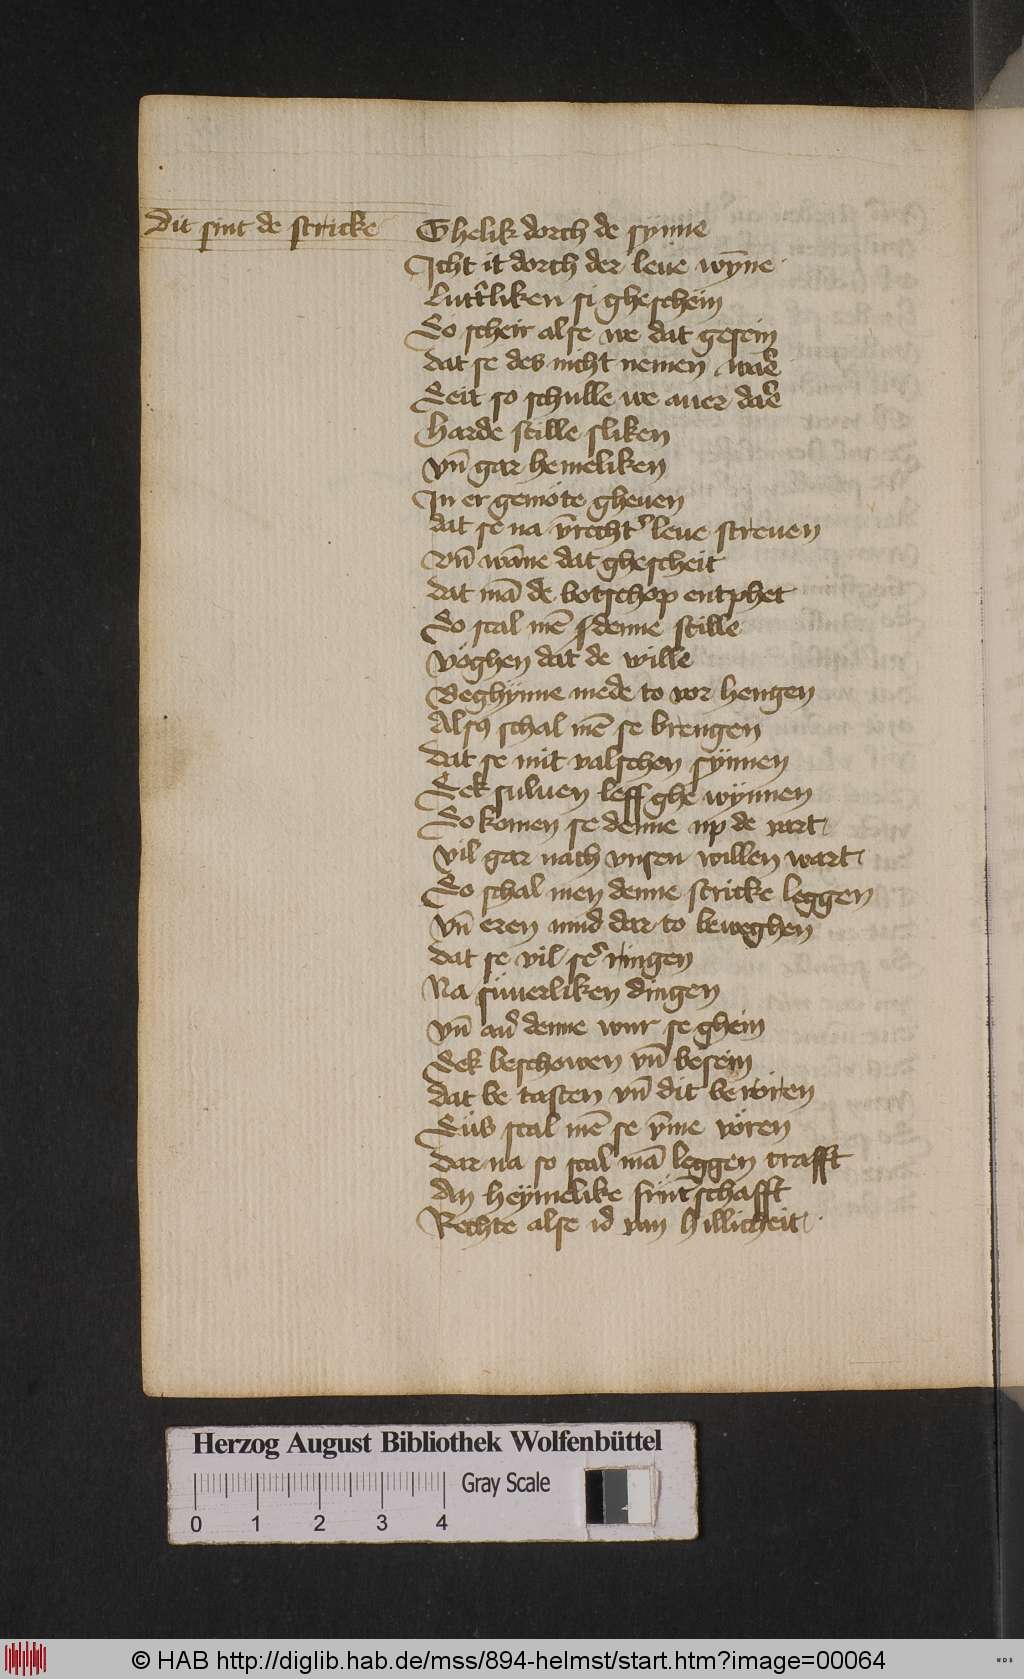 Dit sint de stricke
Ghelik dorch de synne
Icht it dorch der leue wȳne
Lutt᷑liken si ghescheın
So scheir alse we dat gesein
dat se des nicht nemen war̄
Seit so schulle we auer dar̄
harde stille sliken
vn̄ gar hemeliken
In er gemöte gheuen
dat se na v̄recht᷑ leue streuen
vn̄ wāne dat ghescheit
dat mā de botschop entphet
So scal mē denne stille
vöghen dat de wille
Beghynne mede to vor hengen
Alsꝯ schal mē se brengen
dat se mit valschen synnen
Sek suluen leff ghe wynnen
So komen se denne up de vart
vil gar nach vnsen willen wart
So schal men denne stricke leggen
vn̄ eren mud dar to beweghen
dat se vil se᷑ ringen
Na süuerliken dingen
vn̄ au᷑ denne wur se ghein
Sek beschowen vn̄ besein
dat be tasten vn̄ dit be rören
Süs scal mē se v̄me vören
dar na so scal mā leggen crafft
An heymelike frūtschafft
Rechte alse id van hillicheit
Herzog August Bibliothek Wolfenbüttel
Gray Scale
0 1 2 3 4
© HAB http://diglib.hab.de/mss/894-helmst/start.htm?image=00064